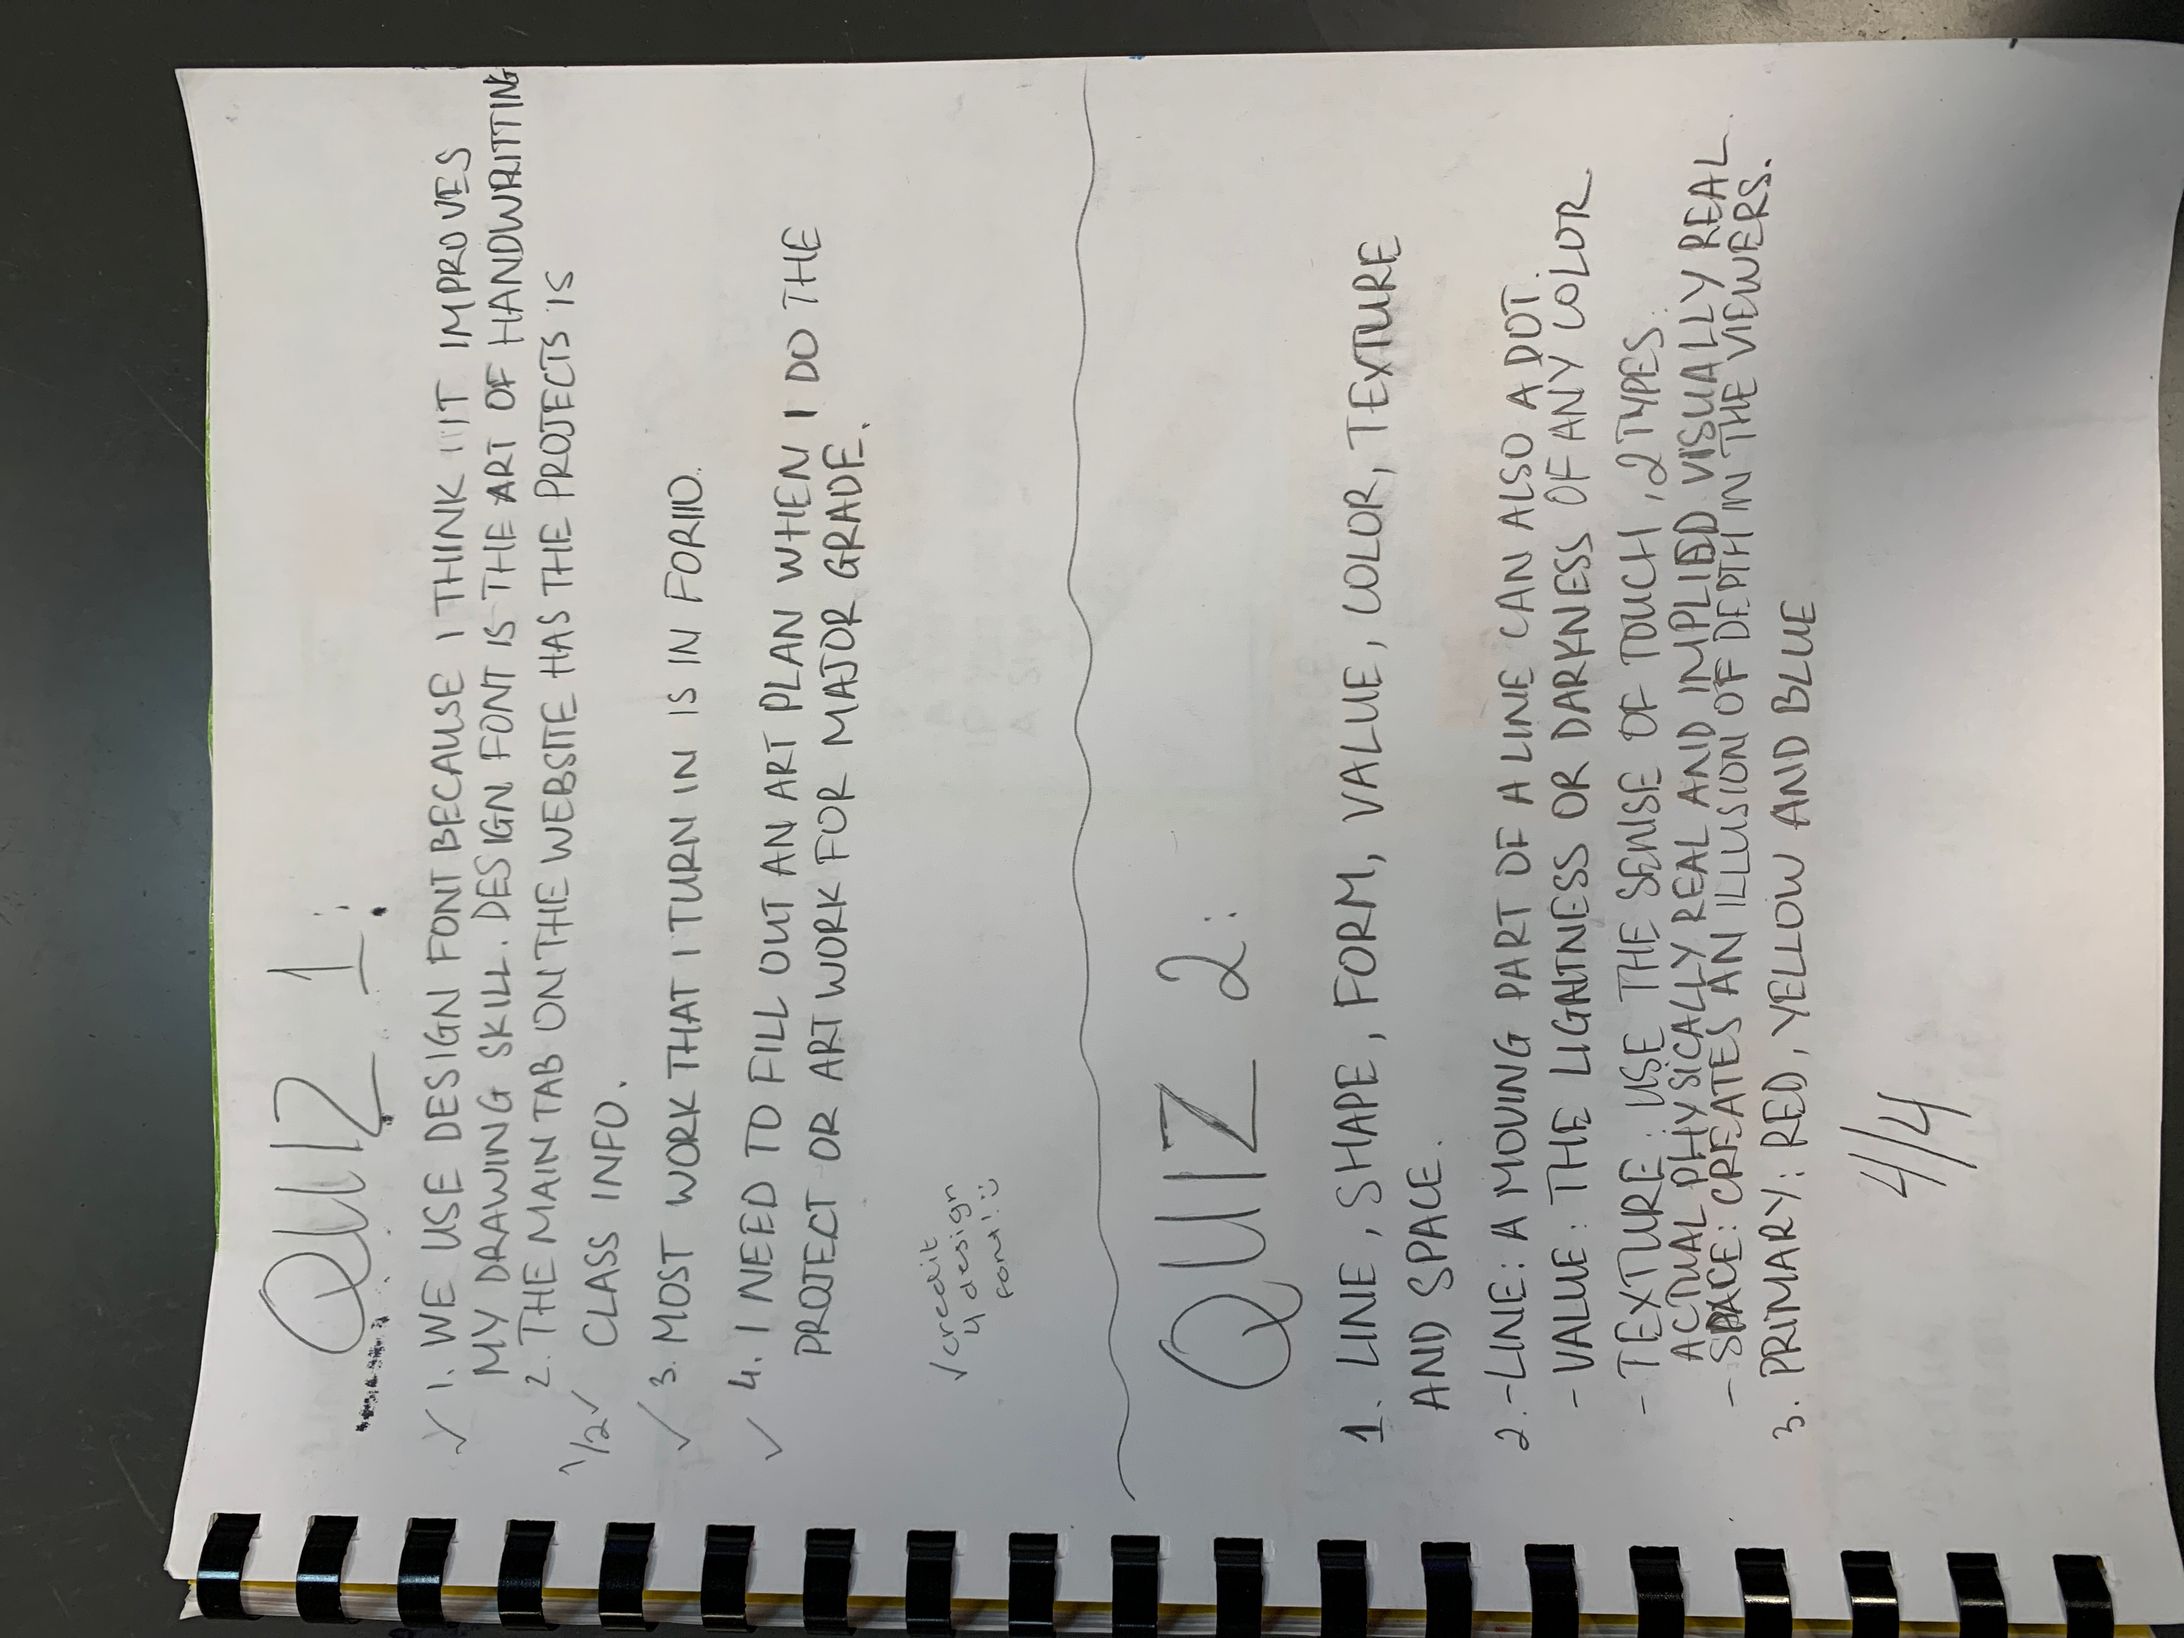 QUIZ 1:
✓ 1. WE USE DESIGN FONT BECAUSE I THINK IT IMPROVES
MY DRAWING SKILL. DESIGN FONT IS THE ART OF HANDWRITTING
2. THE MAIN TAB ON THE WEBSITE HAS THE PROJECTS IS
1/2✓ CLASS INFO.
✓ 3. MOST WORK THAT I TURN IN IS IN FORIIO.
✓ 4. I NEED TO FILL OUT AN ART PLAN WHEN I DO THE
PROJECT OR ARTWORK FOR MAJOR GRADE.
✓credit
4 design
font! :)
QUIZ 2:
1. LINE, SHAPE, FORM, VALUE, COLOR, TEXTURE
AND SPACE.
2. -LINE: A MOVING PART OF A LINE CAN ALSO A DOT.
- VALUE: THE LIGAHTNESS OR DARKNESS OF ANY COLOR
- TEXTURE: USE THE SENSE OF TOUCH, 2 TYPES.
ACTUAL PHYSICALLY REAL AND IMPLIED VISUALLY REAL.
- SPACE: CREATES AN ILLUSION OF DEPTH IN THE VIEWERS.
3. PRIMARY: RED, YELLOW AND BLUE
4//4